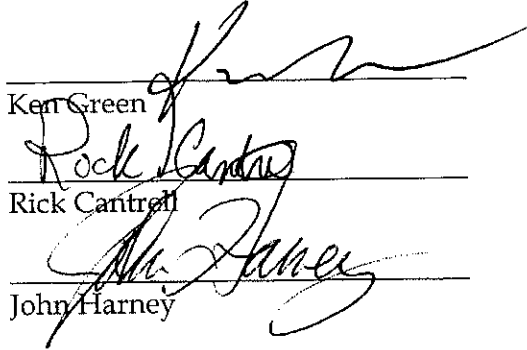 Ken Green
Rock Cantrell
Rick Cantrell
John Harney
John Harney